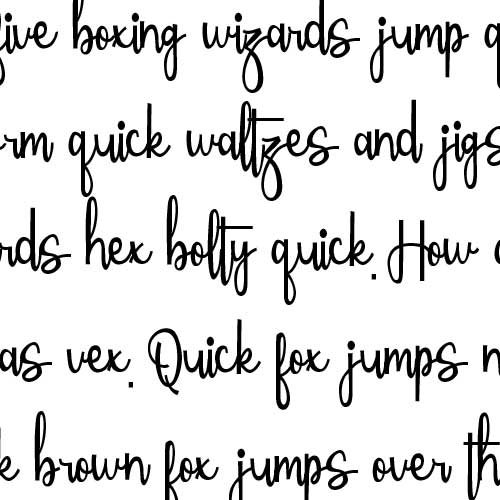 five boxing wizards jump q
rm quick waltzes and jigs
rds hex bolty quick. How
as vex. Quick fox jumps n
k brown fox jumps over th